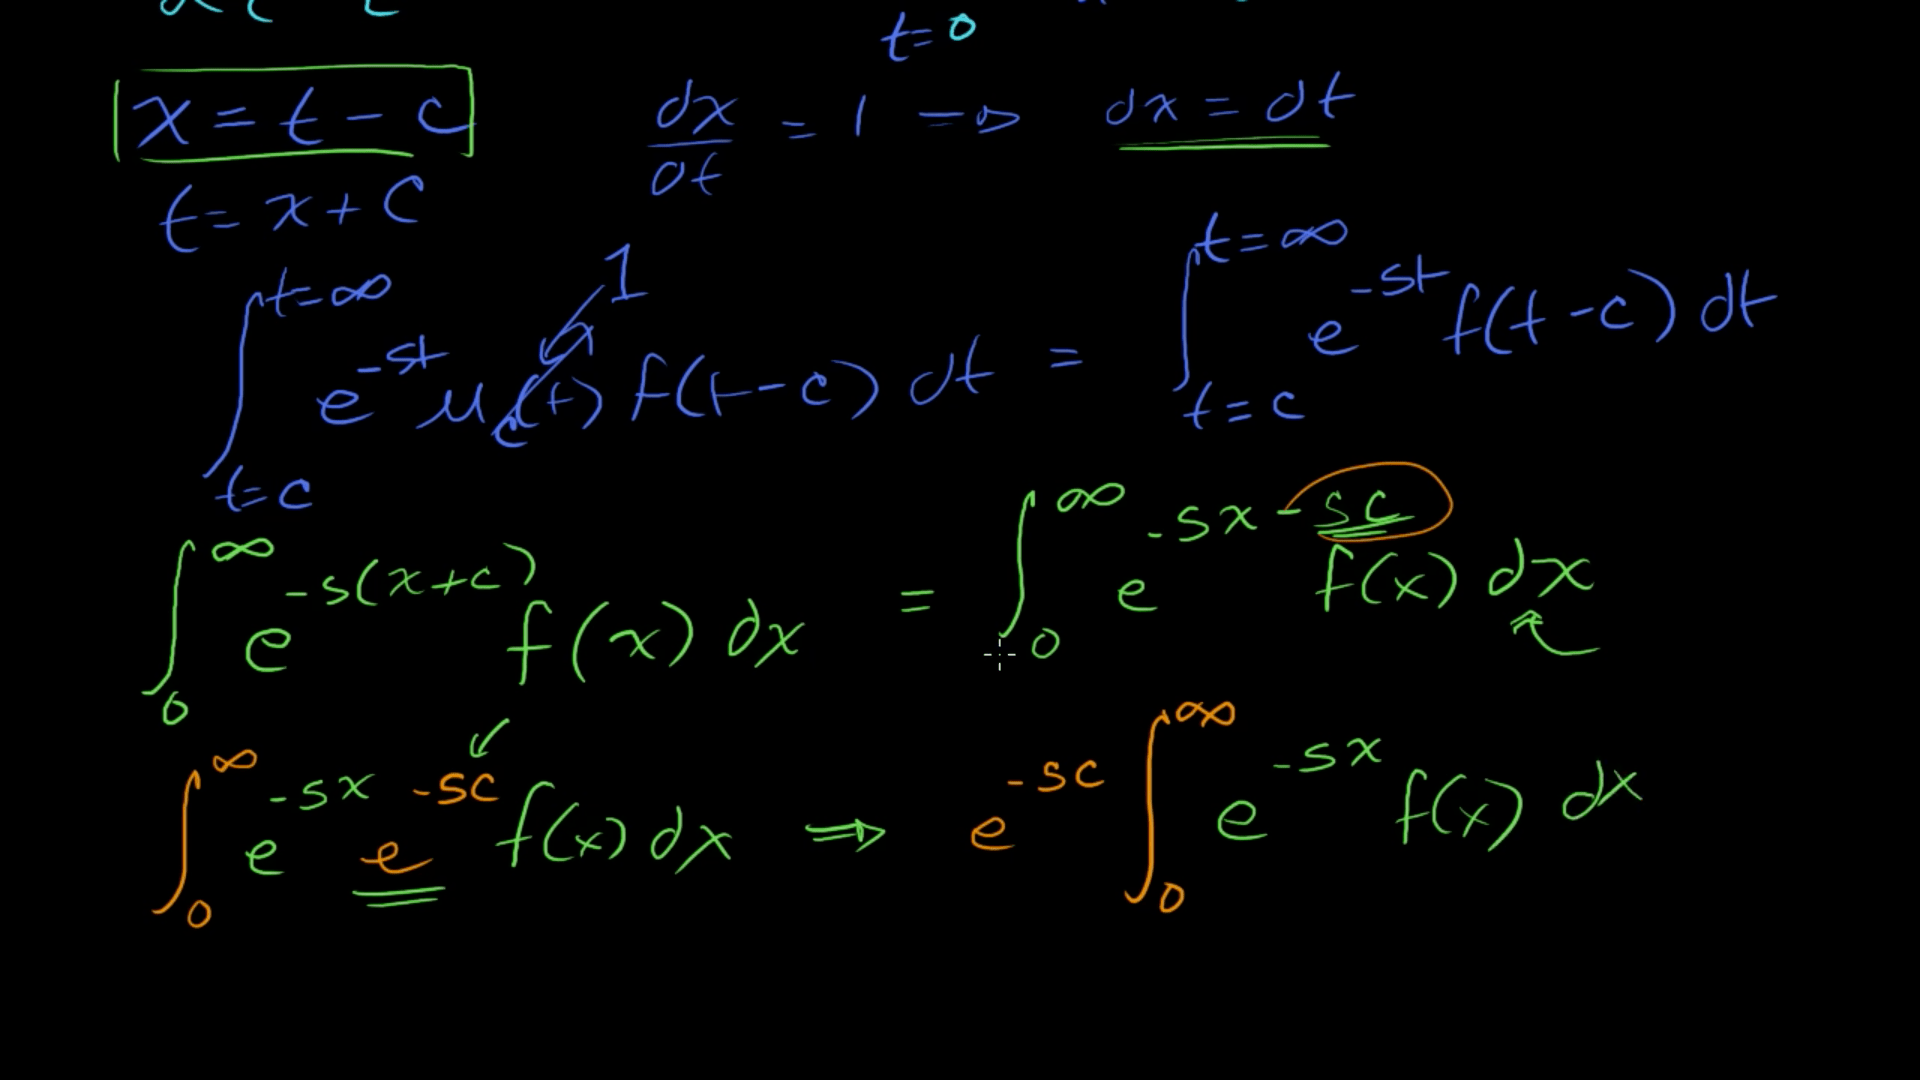 t=0
x = t - c
dx/dt = 1 => dx = dt
t = x + c
∫_{t=c}^{t=∞} e^{-st} μ_c(t) f(t-c) dt = ∫_{t=c}^{t=∞} e^{-st} f(t-c) dt
1
∫_0^∞ e^{-s(x+c)} f(x) dx = ∫_0^∞ e^{-sx-sc} f(x) dx
∫_0^∞ e^{-sx} e^{-sc} f(x) dx ⇒ e^{-sc} ∫_0^∞ e^{-sx} f(x) dx